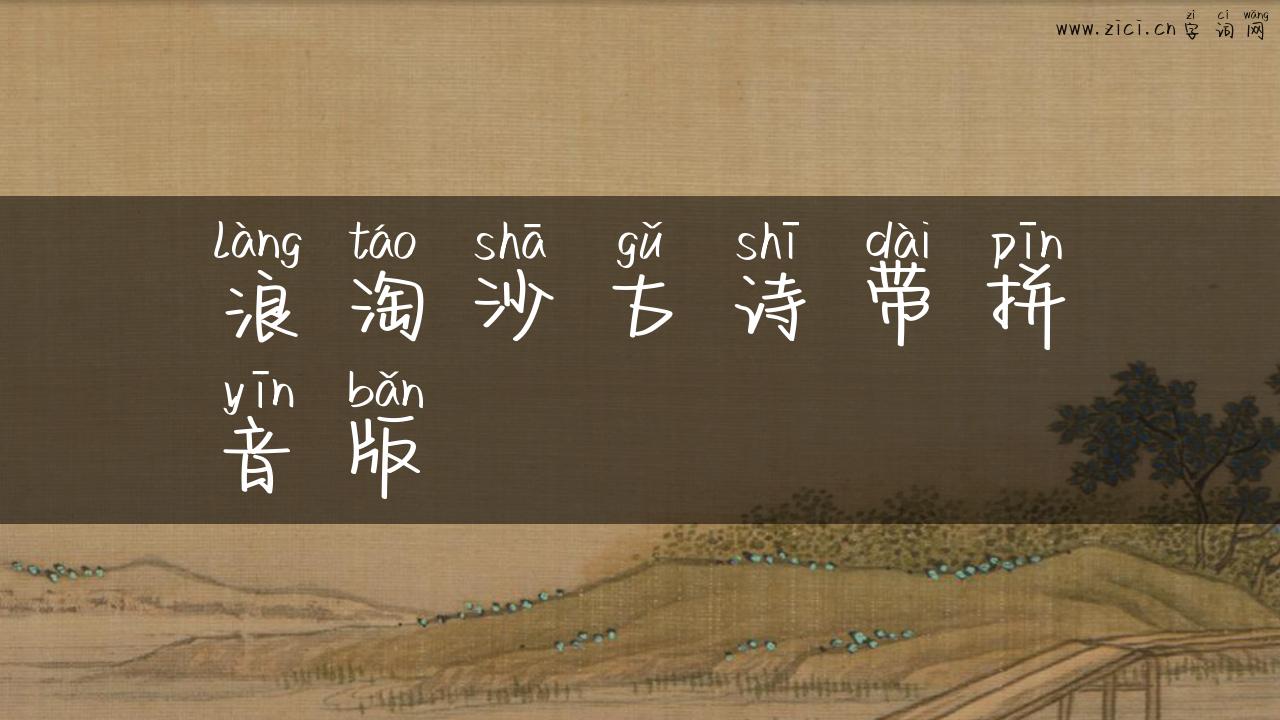 zì cí wǎng
www.zici.cn 字词网
làng táo shā gǔ shī dài pīn
浪淘沙古诗带拼
yīn bǎn
音版